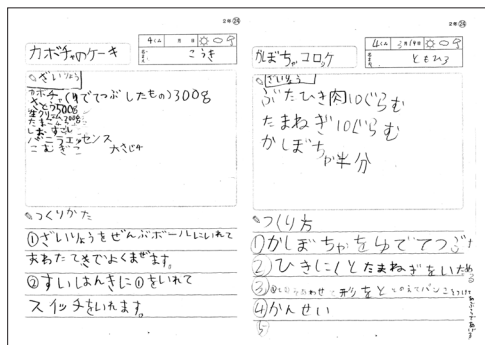 2年㉔
カボチャのケーキ
4くみ 月 日
こうき
ざいりょう
カボチャ(ゆでてつぶしたもの)300g
さとう500g
生クリーム200g
たまご
しお・すこし
バニラエッセンス
こむぎこ 大さじ4
つくりかた
①ざいりょうをぜんぶボールにいれて
あわたてきでよくまぜます。
②すいはんきに①をいれて
スイッチをいれます。
2年㉔
かぼちゃコロッケ
4くみ 月 日
ともひろ
ざいりょう
ぶたひき肉10ぐらむ
たまねぎ10ぐらむ
かぼちゃ半分
つくり方
1)かぼちゃをゆでてつぶす
2)ひきにくとたまねぎをいためる
3) あわせ 形をととのえてパンこ
4)かんせい
5